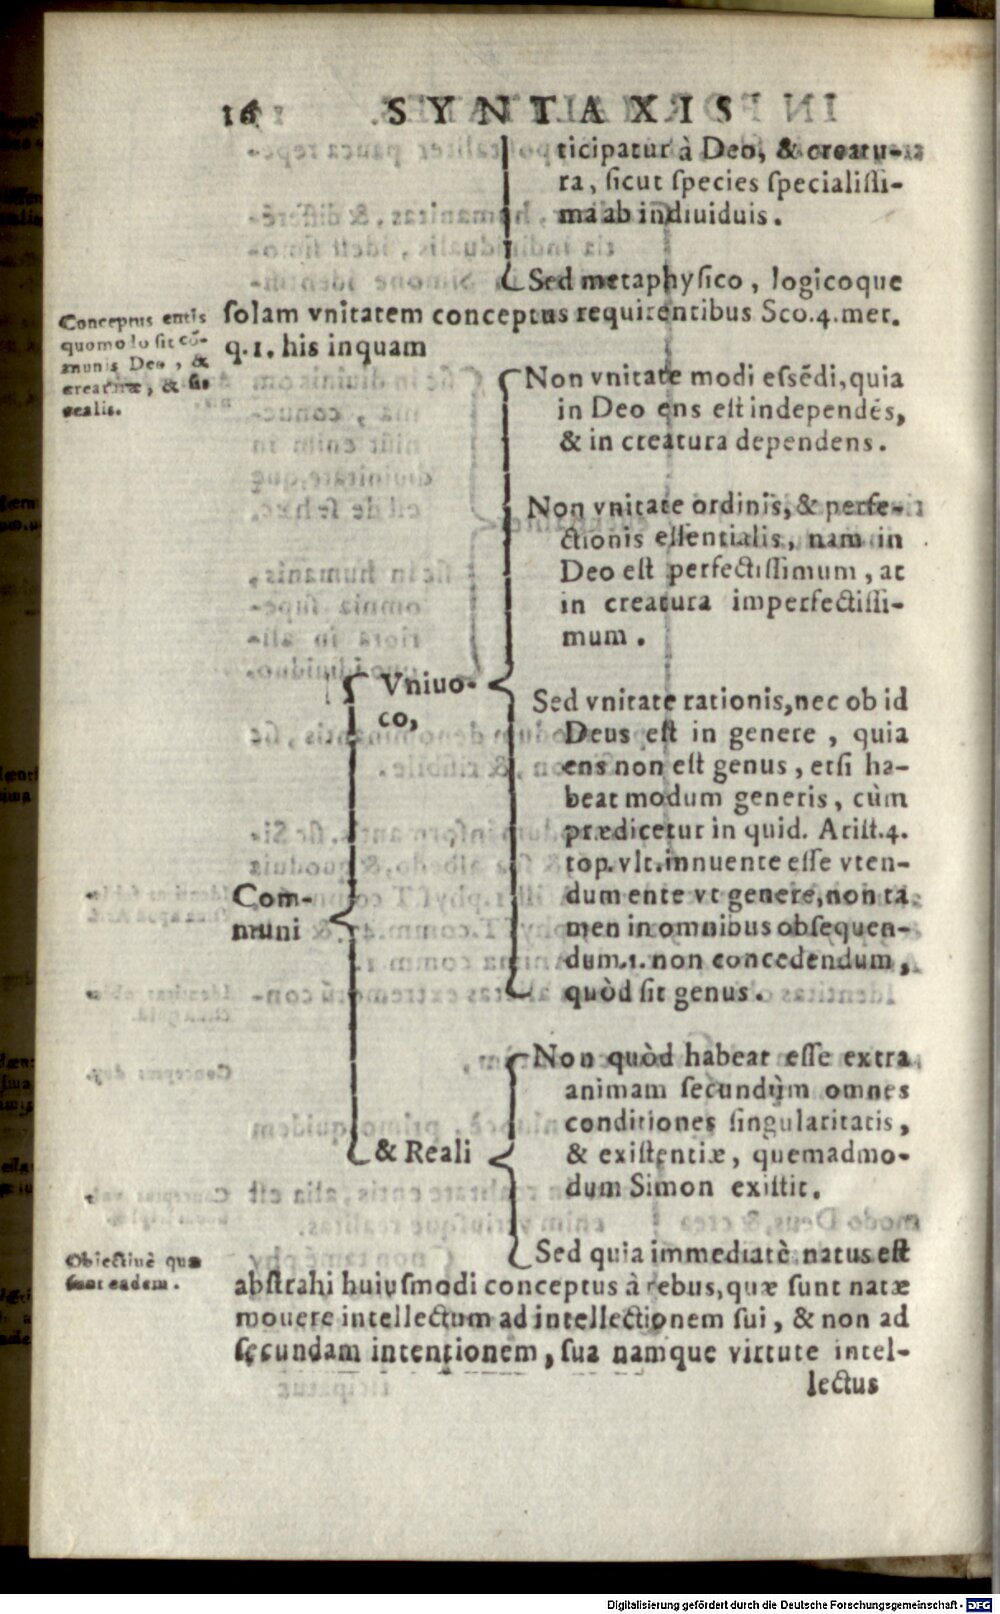 16 SYNTAXIS
ticipatur à Deo, & creatu-
ra, sicut species specialissi-
ma ab indiuiduis.
Sed metaphysico, logicoque
solam vnitatem conceptus requirentibus Sco.4.met.
q.1. his inquam
Conceptus entis
quomodo sit cō-
munis Deo, &
creaturæ, & sit
realis.
Non vnitate modi essēdi, quia
in Deo ens est independēs,
& in creatura dependens.
Non vnitate ordinis, & perfe-
ctionis essentialis, nam in
Deo est perfectissimum, at
in creatura imperfectissi-
mum.
Vniuo-
co,
Sed vnitate rationis, nec ob id
Deus est in genere, quia
ens non est genus, etsi ha-
beat modum generis, cùm
prædicetur in quid. Arist.4.
top.vlt.innuente esse vten-
dum ente vt genere, non ta
men in omnibus obsequen-
dum.1. non concedendum,
quòd sit genus.
Com-
muni
Non quòd habeat esse extra
animam secundùm omnes
conditiones singularitatis,
& existentiæ, quemadmo-
dum Simon existit.
& Reali
Sed quia immediatè natus est
abstrahi huiusmodi conceptus à rebus, quæ sunt natæ
mouere intellectum ad intellectionem sui, & non ad
secundam intentionem, sua namque virtute intel-
lectus
Obiectiuè quæ
sunt eadem.
Digitalisierung gefördert durch die Deutsche Forschungsgemeinschaft - DFG